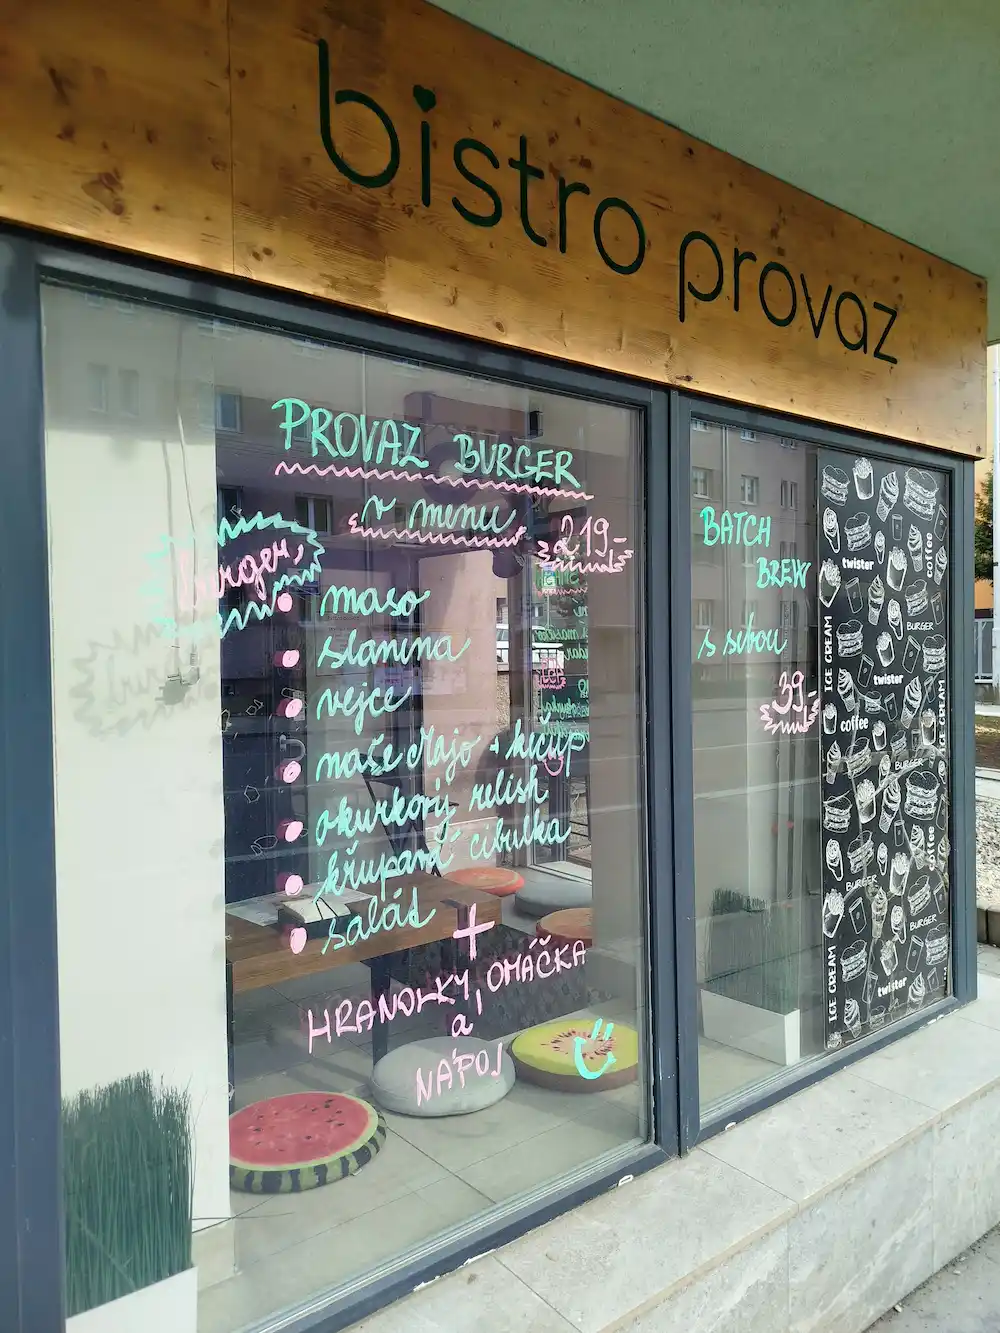 bistro provaz
PROVAZ BURGER
v menu
219,-
burger,
maso
slanina
vejce
naše Majo + kečup
okurkový relish
křupavá cibulka
salát
+
HRANOLKY, OMÁČKA
a
NÁPOJ
BATCH
BREW
s sebou
39,-
twister
coffee
BURGER
ICE CREAM
twister
ICE CREAM
coffee
BURGER
coffee
BURGER
BURGER
ICE CREAM
twister